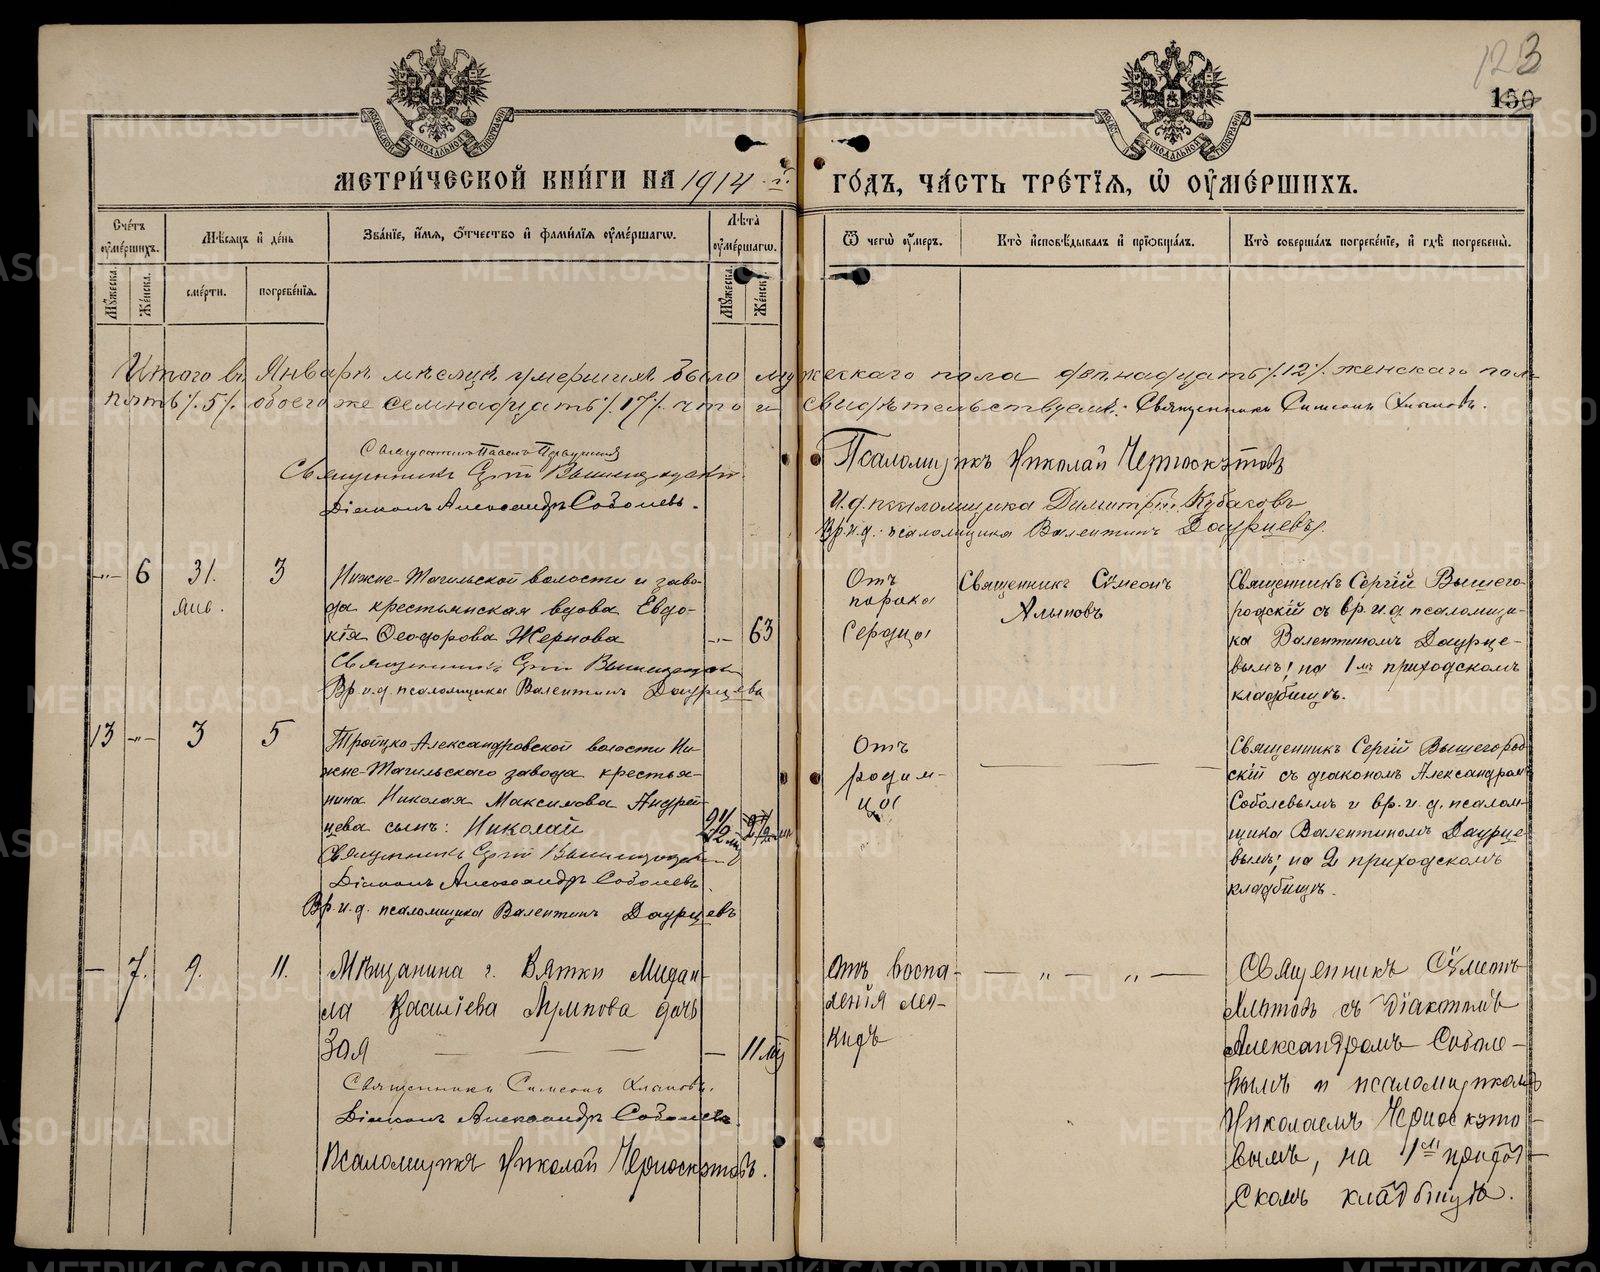 123
150
МЕТРИ́ЧЕСКОЙ КНИ́ГИ НА 1914 г. ГО́ДЪ, ЧА́СТЬ ТРЕ́ТІЯ, Ѽ ОУ҆МЕ́РШИХЪ.
Сче́тъ оу҆ме́ршихъ.
Мѣ́сяцъ и҆ де́нь
Зва́ніе, и҆́мя, ѻ҆́тчество и҆ фами́лія оу҆ме́ршагѡ.
Лѣ́та оу҆ме́ршагѡ.
Ѿ чегѡ̀ оу҆́меръ.
Кто̀ и҆сповѣ́дывалъ и҆ прїѡбща́лъ.
Кто̀ соверша́лъ погребе́ніе, и҆ гдѣ̀ погребены̀.
Мꙋ́жеска.
Же́нска.
сме́рти.
погребе́нія.
Мꙋ́жеска.
Же́нска.
Итого въ Январѣ мѣсяцѣ умершихъ было мужескаго пола двѣнадцать /.12/. женскаго пола
пять /.5/. обоего же семнадцать /.17/. что и свидѣтельствуемъ: Священникъ Симеонъ Хлыповъ.
Священникъ Павелъ
Священникъ Сергій Вышегородскій.
Діаконъ Александръ Соболевъ.
Псаломщикъ Николай Черноскутовъ
И. д. псаломщика Димитрій Кубасовъ
Вр. и. д. псаломщика Валентинъ Даурцевъ.
-"- 6 31. янв. 3
Нижне-Тагильской волости и заво-
да крестьянская вдова Евдо-
кія Ѳеодорова Жернова -"- 63
Священникъ Сергій Вышегородскій
Вр. и. д. псаломщика Валентинъ Даурцевъ
Отъ
порока
сердца
Священникъ Сѵмеонъ
Хлыповъ
Священникъ Сергій Вышего-
родскій съ вр. и. д. псаломщи-
ка Валентиномъ Даурце-
вымъ; на 1мъ приходскомъ
кладбищѣ.
13 -"- 3 5
Тройцко-Александровской волости Ни-
жне-Тагильскаго завода крестья-
нина Николая Максимова Андрей-
цева сынъ: Николай
Священникъ Сергій Вышегородскій
Діаконъ Александръ Соболевъ.
Вр. и. д. псаломщика Валентинъ Даурцевъ
Отъ
родим-
ца
Священникъ Сергій Вышегород-
скій съ діакономъ Александромъ
Соболевымъ и вр. и. д. псалом-
щика Валентиномъ Даурце-
вымъ; на 2 приходскомъ
кладбищѣ.
— 7. 9. 11.
Мѣщанина г. Вятки Михаи-
ла Василіева дочь
Зоя — — — — 11 мѣс
Священникъ Симеонъ Хлыповъ.
Діаконъ Александръ Соболевъ.
Псаломщикъ Николай Черноскутовъ.
Отъ воспа-
ленія лег-
кихъ
— " — " —
Священникъ Сѵмеонъ
Хлыповъ съ діакономъ
Александромъ Соболе-
вымъ и псаломщикомъ
Николаемъ Черноскуто-
вымъ, на 1мъ приход-
скомъ кладбищѣ.
METRIKI.GASO-URAL.RU